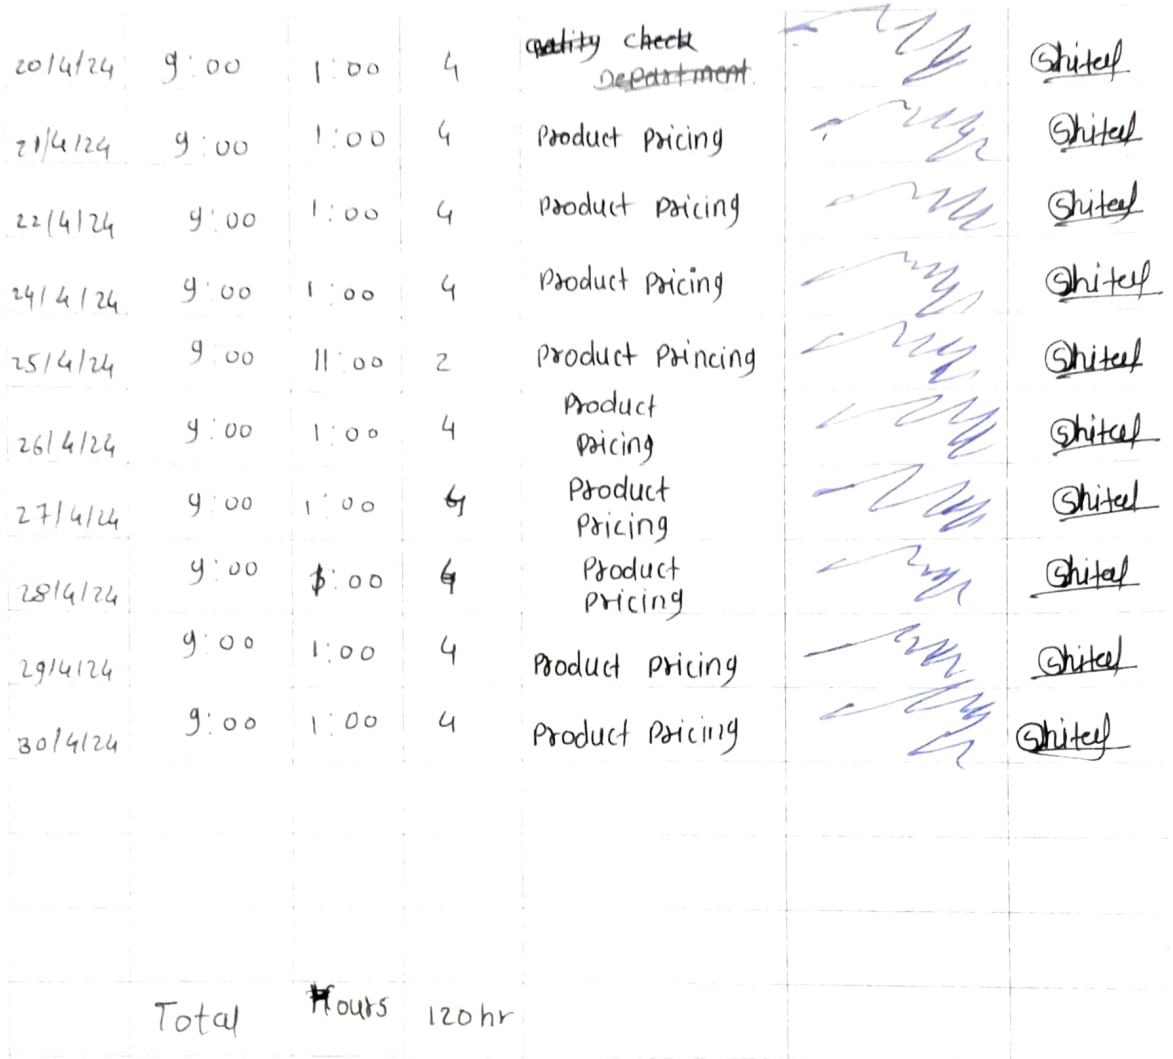 20/4/24 9:00 1:00 4 quality check Shital
Department.
21/4/24 9:00 1:00 4 Product Pricing Shital
22/4/24 9:00 1:00 4 Product Pricing Shital
24/4/24 9:00 1:00 4 Product Pricing Shital
25/4/24 9:00 11:00 2 Product Princing Shital
26/4/24 9:00 1:00 4 Product Shital
Pricing
27/4/24 9:00 1:00 4 Product Shital
Pricing
28/4/24 9:00 1:00 4 Product Shital
Pricing
29/4/24 9:00 1:00 4 Product Pricing Shital
30/4/24 9:00 1:00 4 Product Pricing Shital
Total Hours 120hr